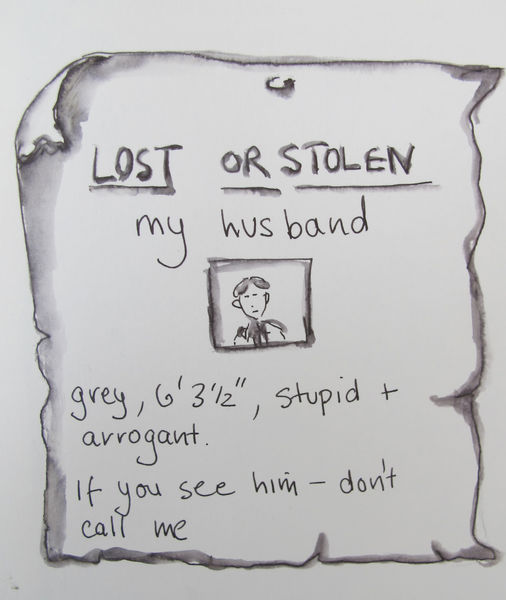 LOST OR STOLEN
my husband
grey, 6' 3½", stupid +
arrogant.
If you see him – don't
call me